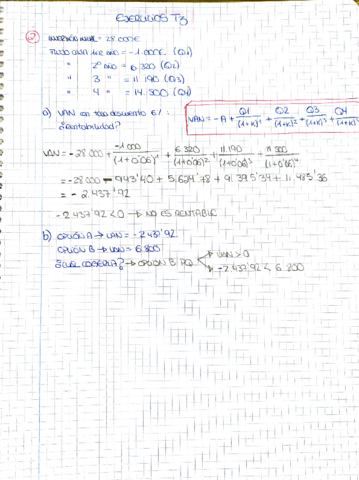 EJERCICIOS T3
2 INVERSIÓN INICIAL = 28.000€
FLUJO CAJA 1er AÑO = -1.000€ (Q1)
" 2º AÑO = 6.320 (Q2)
" 3 " = 11.190 (Q3)
" 4 " = 14.300 (Q4)
a) VAN con tasa descuento 6%:
¿Rentabilidad?
VAN = -A + Q1/(1+K)^1 + Q2/(1+K)^2 + Q3/(1+K)^3 + Q4/(1+K)^4
VAN = -28.000 + -1.000/(1+0'06)^1 + 6.320/(1+0'06)^2 + 11.190/(1+0'06)^3 + /(1+0'06)^4
= -28.000 - 943'40 + 5.624'78 + 9.395'34 + 11.485'36
= -2.437'92
-2.437'92 < 0 → NO ES RENTABLE
b) OPCIÓN A → VAN = -2.437'92
OPCIÓN B → VAN = 6.800
¿CUÁL COGERÍA? → OPCIÓN B PQ → VAN > 0
→ -2.437'92 < 6.800